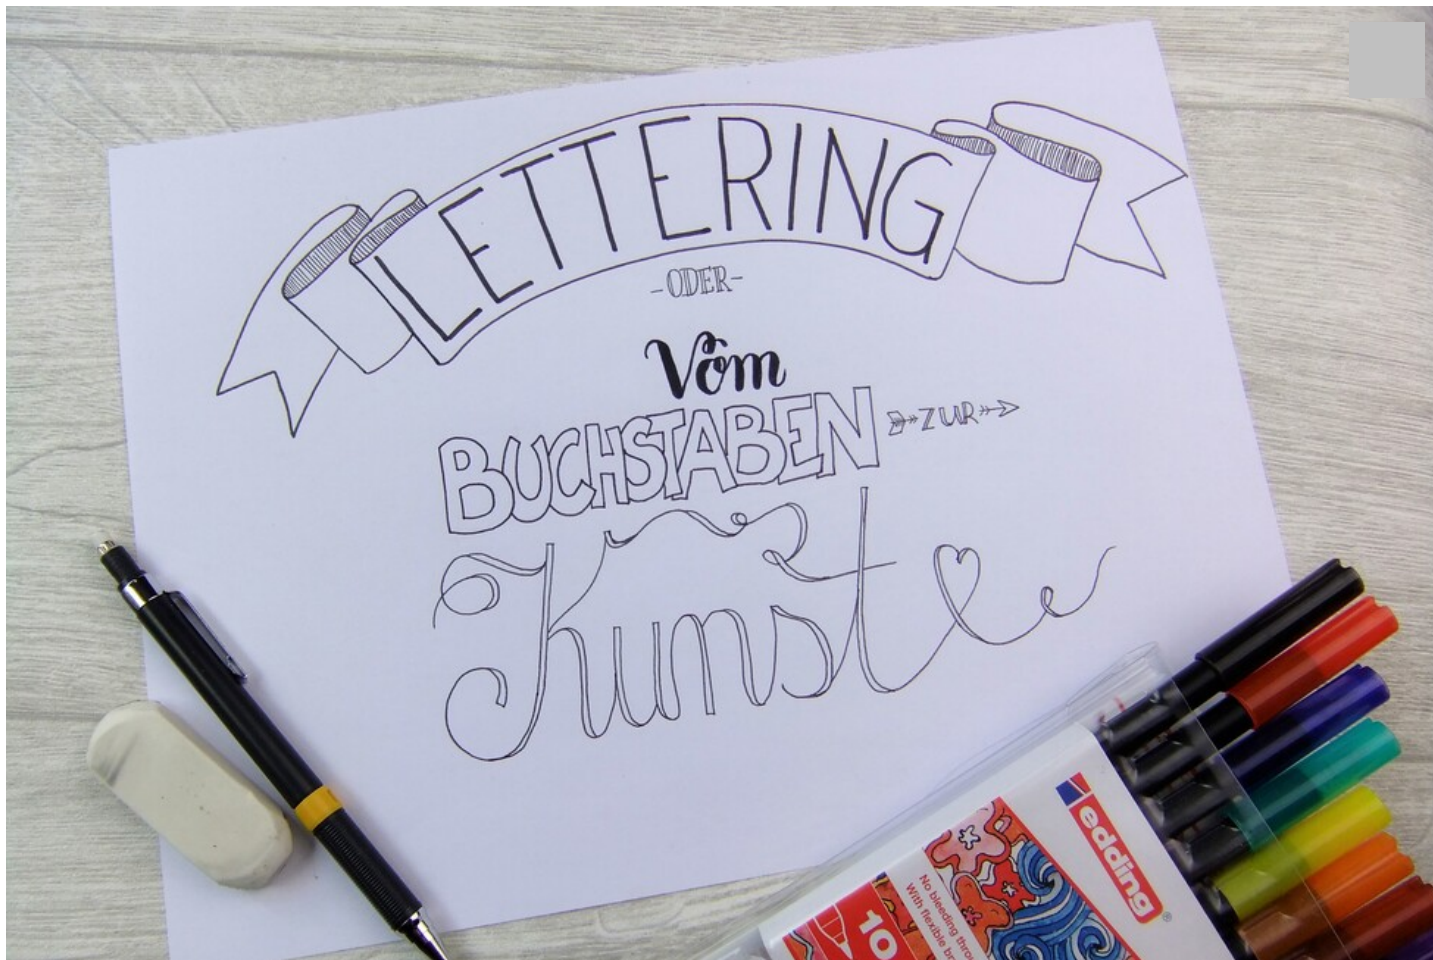 LETTERING
-ODER-
Vom
BUCHSTABEN ZUR
Kunst
edding®
No bleeding
With flexible
10